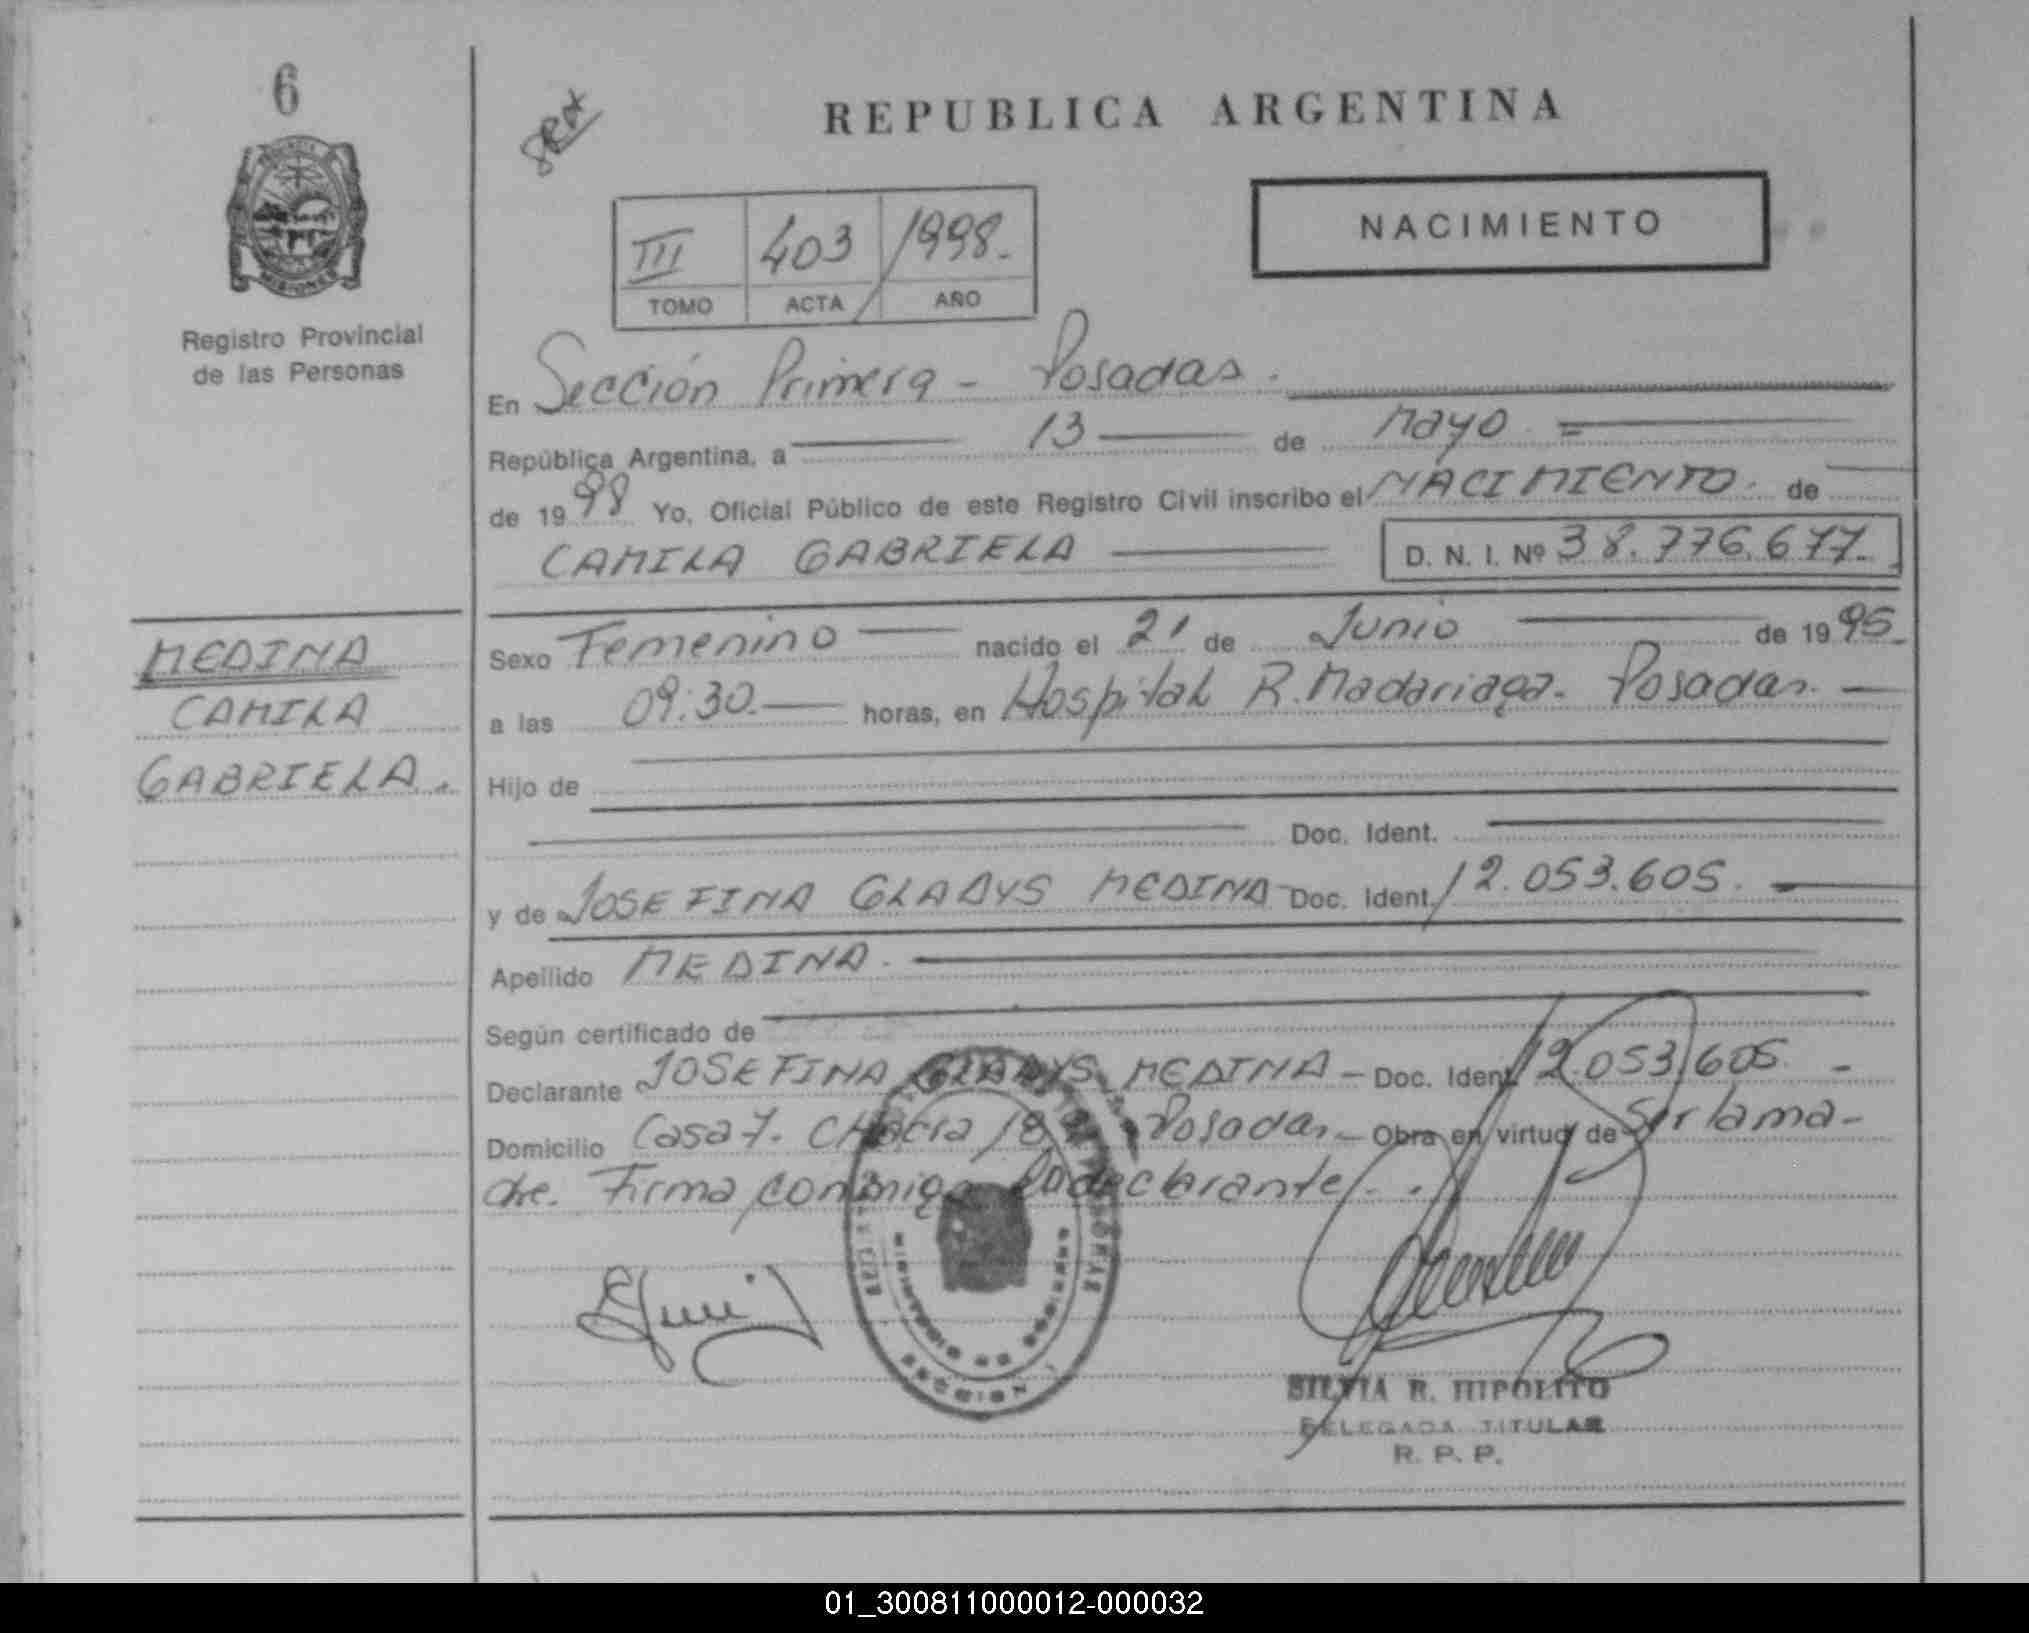 6
PROVINCIA
MISIONES
Registro Provincial
de las Personas
REPUBLICA ARGENTINA
NACIMIENTO
III 403 1998.
TOMO ACTA AÑO
En Sección Primera - Posadas.
República Argentina, a 13 de Mayo
de 1998 Yo, Oficial Público de este Registro Civil inscribo el NACIMIENTO. de
CAMILA GABRIELA D. N. I. Nº 38.776.677.
MEDINA
CAMILA
GABRIELA.
Sexo Femenino nacido el 21 de Junio de 1995
a las 09:30. horas, en Hospital R. Madariaga. Posadas.
Hijo de
Doc. Ident.
y de JOSEFINA GLADYS MEDINA Doc. Ident. 12.053.605.
Apellido MEDINA.
Según certificado de
Declarante JOSEFINA GLADYS MEDINA - Doc. Ident. 12.053.605. -
Domicilio Casa 7. Chacra 18 Posadas. - Obra en virtud de Ser la ma-
dre. Firma conmigo la declarante.
MINISTERIO DE GOBIERNO
SECCION
SILVIA R. HIPOLITO
DELEGADA TITULAR
R. P. P.
01_300811000012-000032